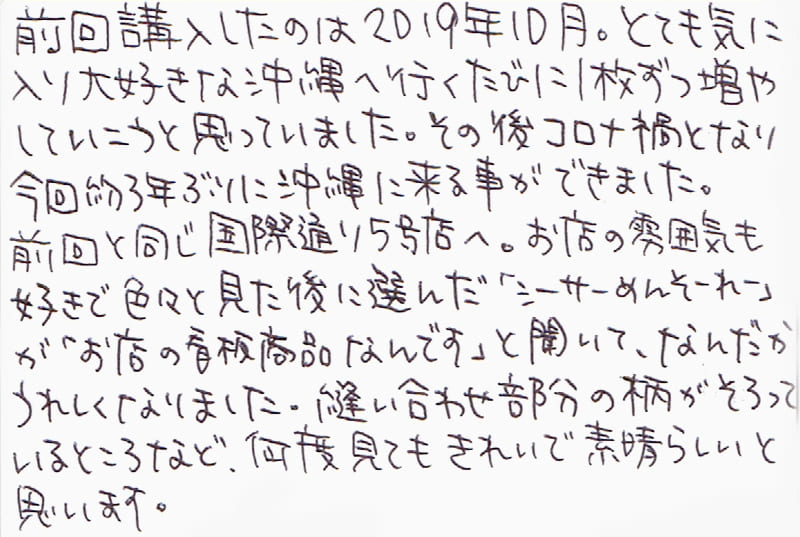 前回講入したのは2019年10月。とても気に
入り大好きな沖縄へ行くたびに1枚ずつ増や
していこうと思っていました。その後コロナ禍となり
今回約3年ぶりに沖縄に来る事ができました。
前回と同じ国際通り5号店へ。お店の雰囲気も
好きで色々と見た後に選んだ「シーサーめんそーれー」
が「お店の看板商品なんです」と聞いて、なんだか
うれしくなりました。縫い合わせ部分の柄がそろって
いるところなど、何度見てもきれいで素晴らしいと
思います。